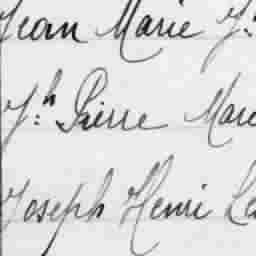 Jean Marie J.
J.h Pierre Marie
Joseph Henri Le